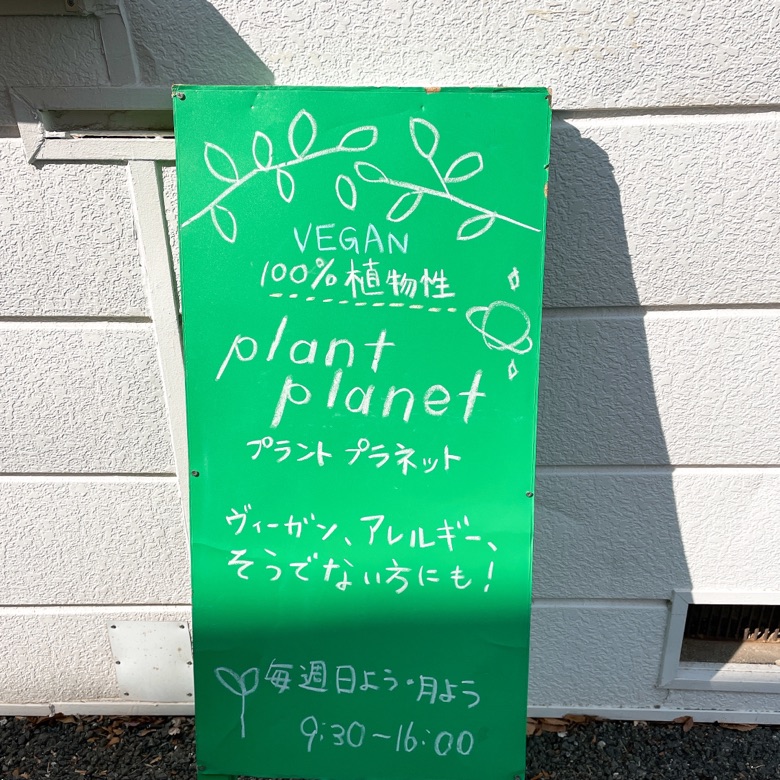 VEGAN
100%植物性
plant
planet
プラント プラネット
ヴィーガン、アレルギー、
そうでない方にも!
毎週日よう・月よう
9:30~16:00